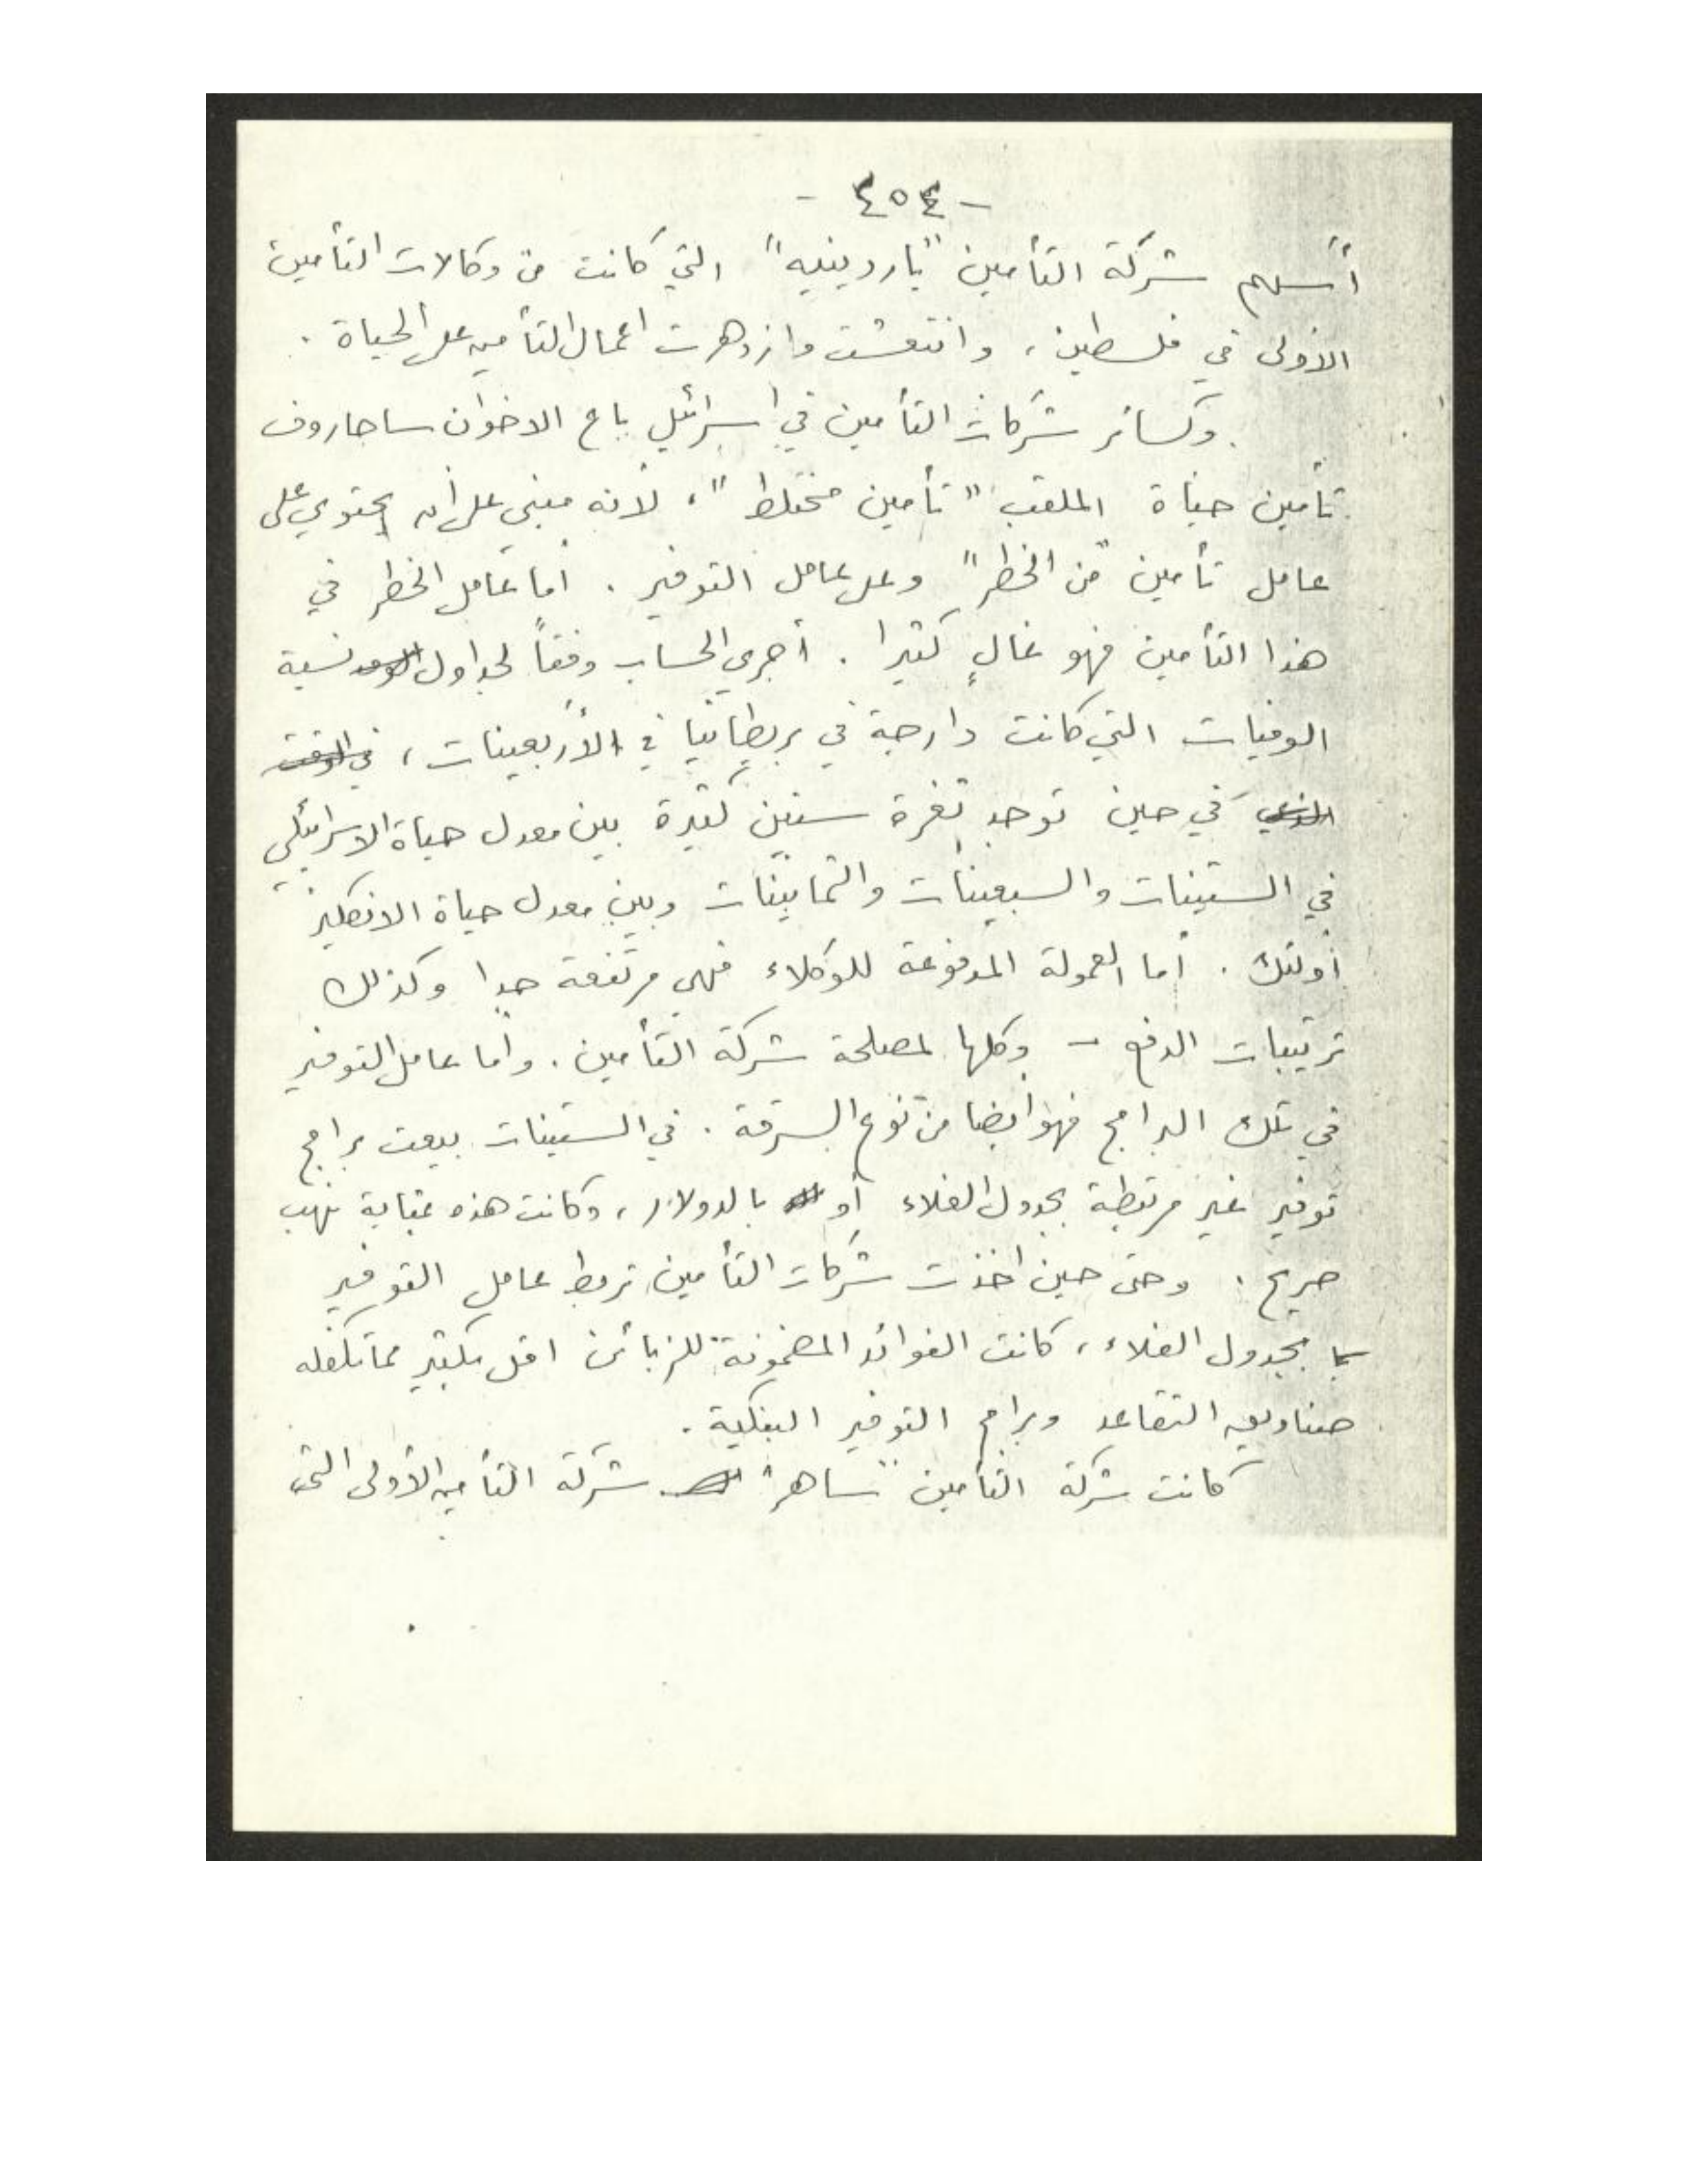 - ٤٥٤ -
أسهم شركة التأمين "ياردينيه" التي كانت من وكالات التأمين
الاولى في فلسطين، وانتعشت وازدهرت اعمال التأمين على الحياة.
وكسائر شركات التأمين في اسرائيل باع الاخوان ساحاروف
تأمين حياة الملقب "تأمين مختلط"، لأنه مبني على أن يحتوي على
عامل تأمين "من الخطر" وعلى عامل التوفير. أما عامل الخطر في
هذا التأمين فهو غالٍ كثيرا. أجري الحساب وفقاً لجداول نسبة
الوفيات التي كانت دارجة في بريطانيا في الأربعينات، في الوقت
الذي في حين توجد ثغرة سنين كثيرة بين معدل حياة الاسرائيلي
في الستينات والسبعينات والثمانينات وبين معدل حياة الانكليز
أولئك. أما العمولة المدفوعة للوكلاء فهي مرتفعة جدا وكذلك
ترتيبات الدفع - وكلها لمصلحة شركة التأمين. وأما عامل التوفير
في تلك البرامج فهو أيضا من نوع السرقة. في الستينات بيعت برامج
توفير غير مرتبطة بجدول الغلاء أو بالدولار، وكانت هذه بمثابة نهب
صريح. وحتى حين اخذت شركات التأمين تربط عامل التوفير
بجدول الغلاء، كانت الفوائد المضمونة للزبائن اقل بكثير مما تكفله
صناديق التقاعد وبرامج التوفير البنكية.
كانت شركة التأمين "ساهر" شركة التأمين الأولى التي